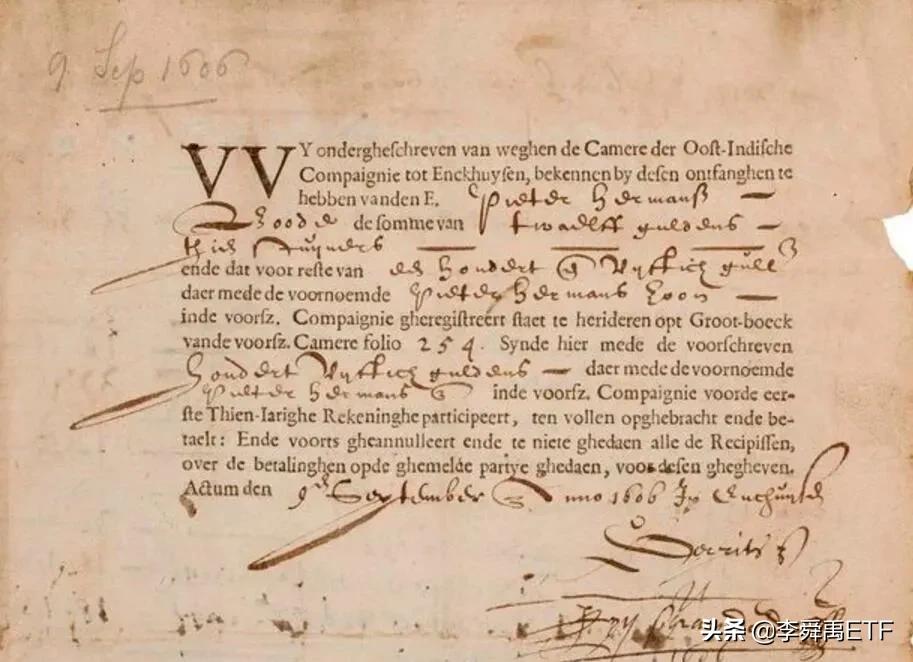 9 Sep 1606
VVY ondergheschreven van weghen de Camere der Oost-Indische
Compaignie tot Enckhuysen, bekennen by desen ontfanghen te
hebben vanden E. Pieter Hermansz
de somme van twaelff guldens

ende dat voor reste van hondert Vijftich gull
daer mede de voornoemde Pieter Hermans
inde voorsz. Compaignie gheregistreert staet te herideren opt Groot-boeck
vande voorsz. Camere folio 254. Synde hier mede de voorschreven
hondert Vijftich guldens daer mede de voornoemde
Pieter Hermans inde voorsz. Compaignie voorde eer-
ste Thien-Iarighe Rekeninghe participeert, ten vollen opghebracht ende be-
taelt: Ende voorts gheannulleert ende te niete ghedaen alle de Recipissen,
over de betalinghen opde ghemelde partye ghedaen, voor desen ghegheven.
Actum den 9 September Anno 1606 In
头条 @李舜禹ETF